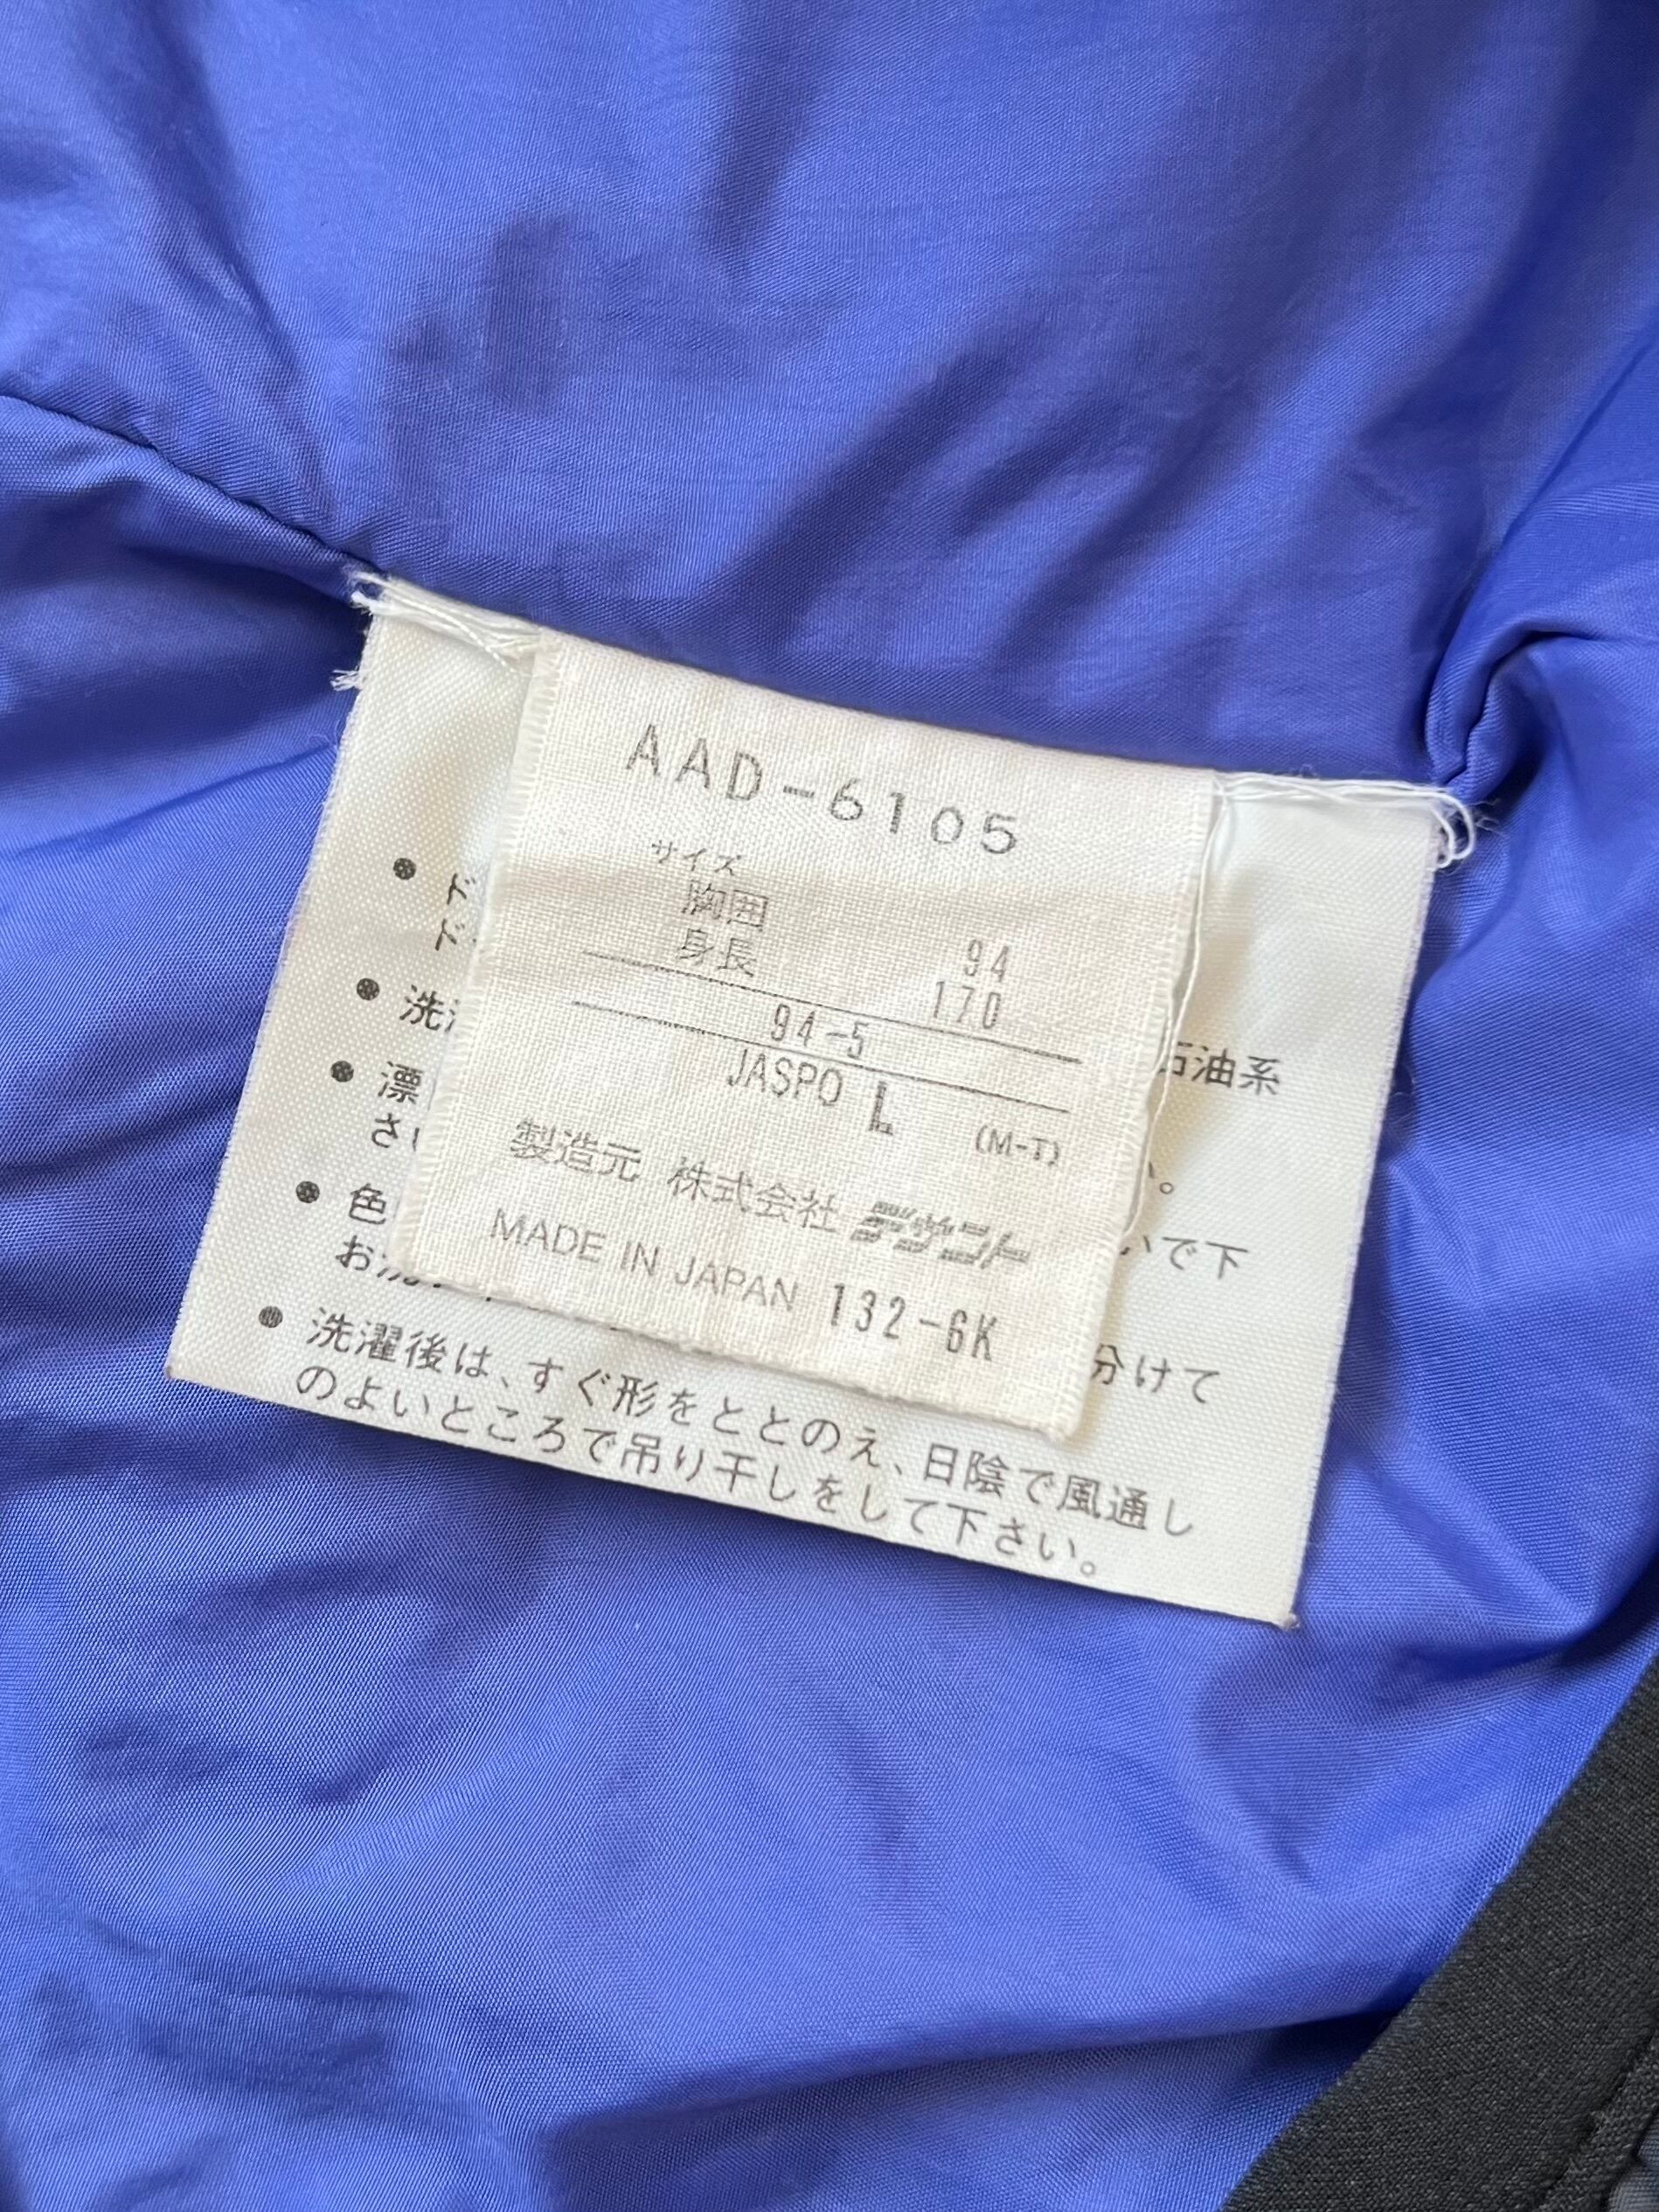 AAD-6105
サイズ
胸囲 94
身長 170
94-5
JASPO L (M-T)
製造元 株式会社 デサント
MADE IN JAPAN 132-6K
洗
石油系
漂
さい
い。
色
いで下
お洗
分けて
● 洗濯後は、すぐ形をととのえ、日陰で風通し
のよいところで吊り干しをして下さい。